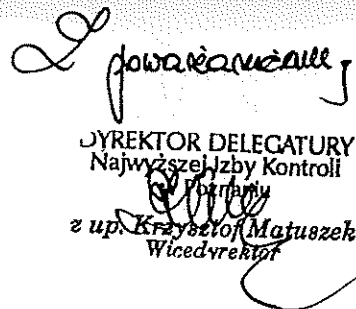 Z poważaniem,
DYREKTOR DELEGATURY
Najwyższej Izby Kontroli
w Poznaniu
z up. Krzysztof Matuszek
Wicedyrektor